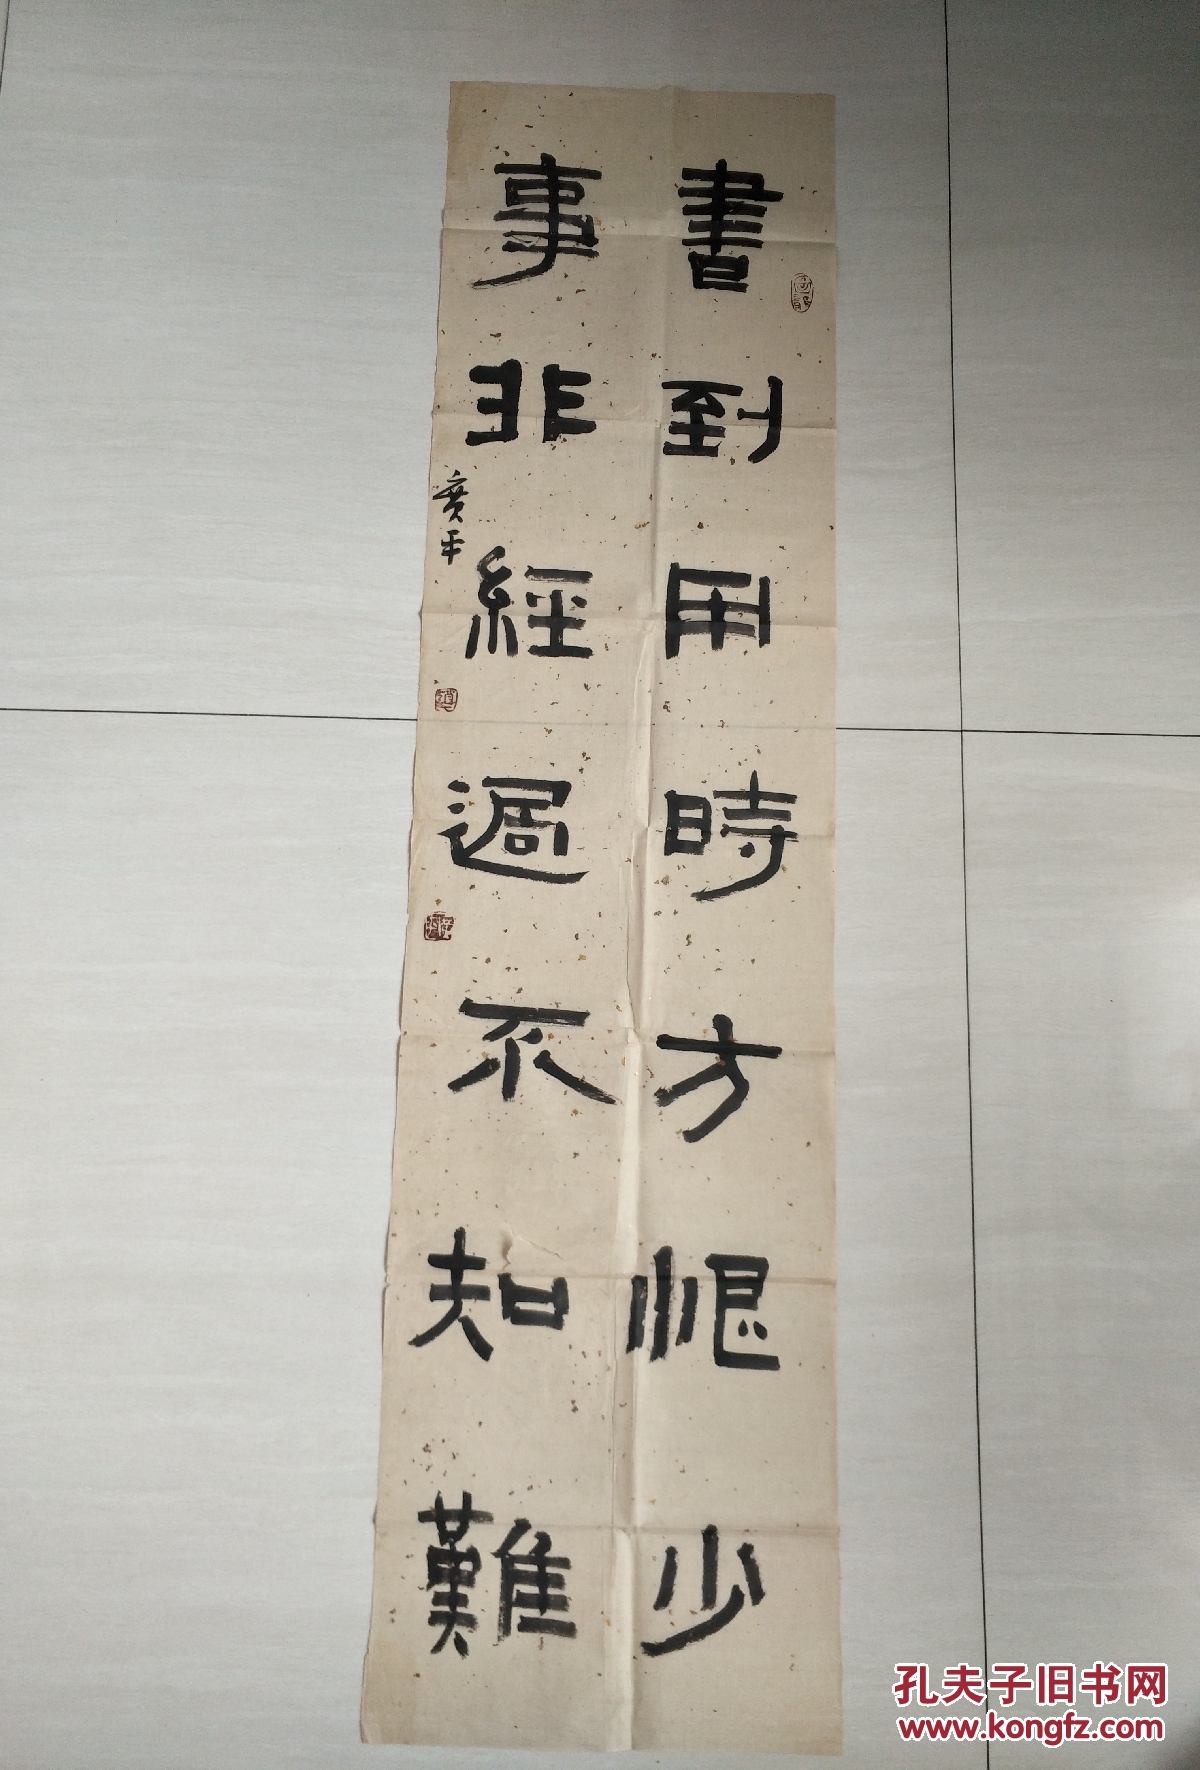 書到用時方恨少
事非經過不知難
孔夫子旧书网
www.kongfz.com